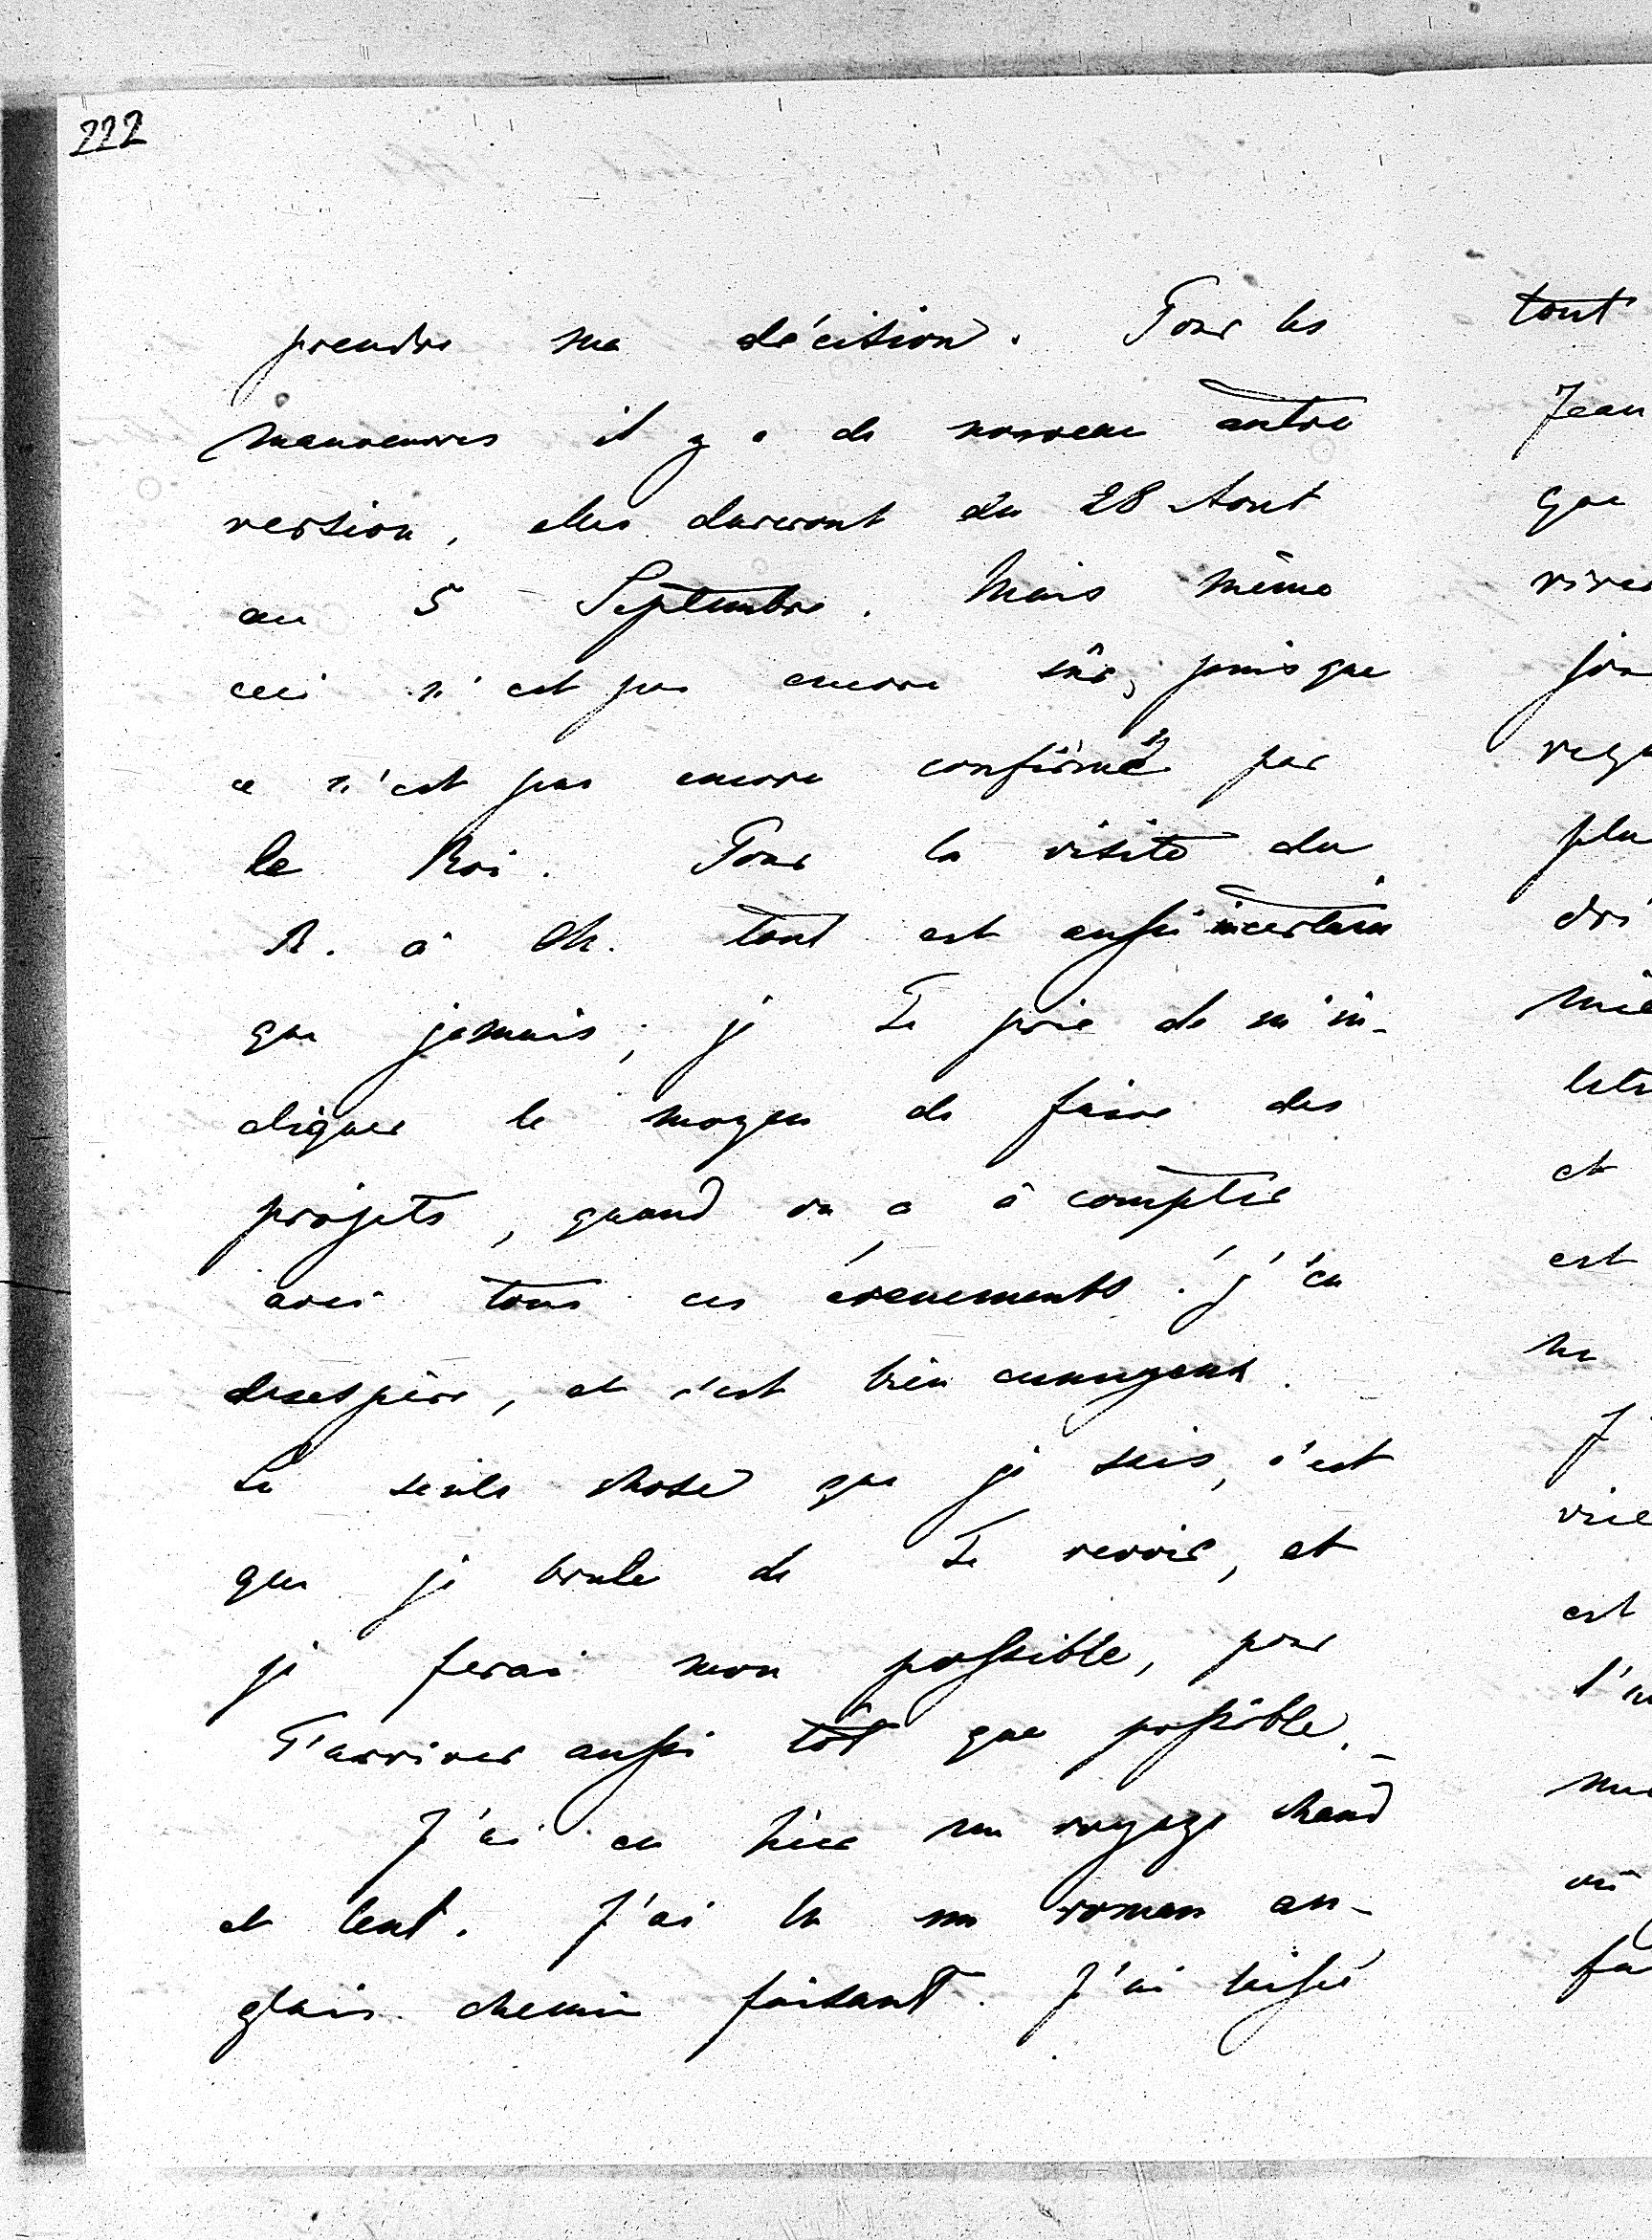 222
prendre ma décision. Pour les
manoeuvres il y a de nouveau autre
version, elles dureront du 28 Aout
au 5 Septembre. Mais même
ceci n'est pas encore sûr, puisque
ce n'est pas encore confirmé par
le Roi. Pour la visite du
R. à Ch. tout est aussi incertain
que jamais; je Te prie de m'in-
diquer le moyen de faire des
projets, quand on a à compter
avec tous ces évenements. j'en
desespère, et c'est bien ennuyeux.
La seule chose que je sais, c'est
que je brule de Te revoir, et
je ferai mon possible, pour
T'arriver aussi tôt que possible._
J'ai eu hier un voyage chaud
et lent. J'ai lu un roman an-
glais chemin faisant. J'ai laissé
tout
Jean
que
plu
et
est
J
est
où